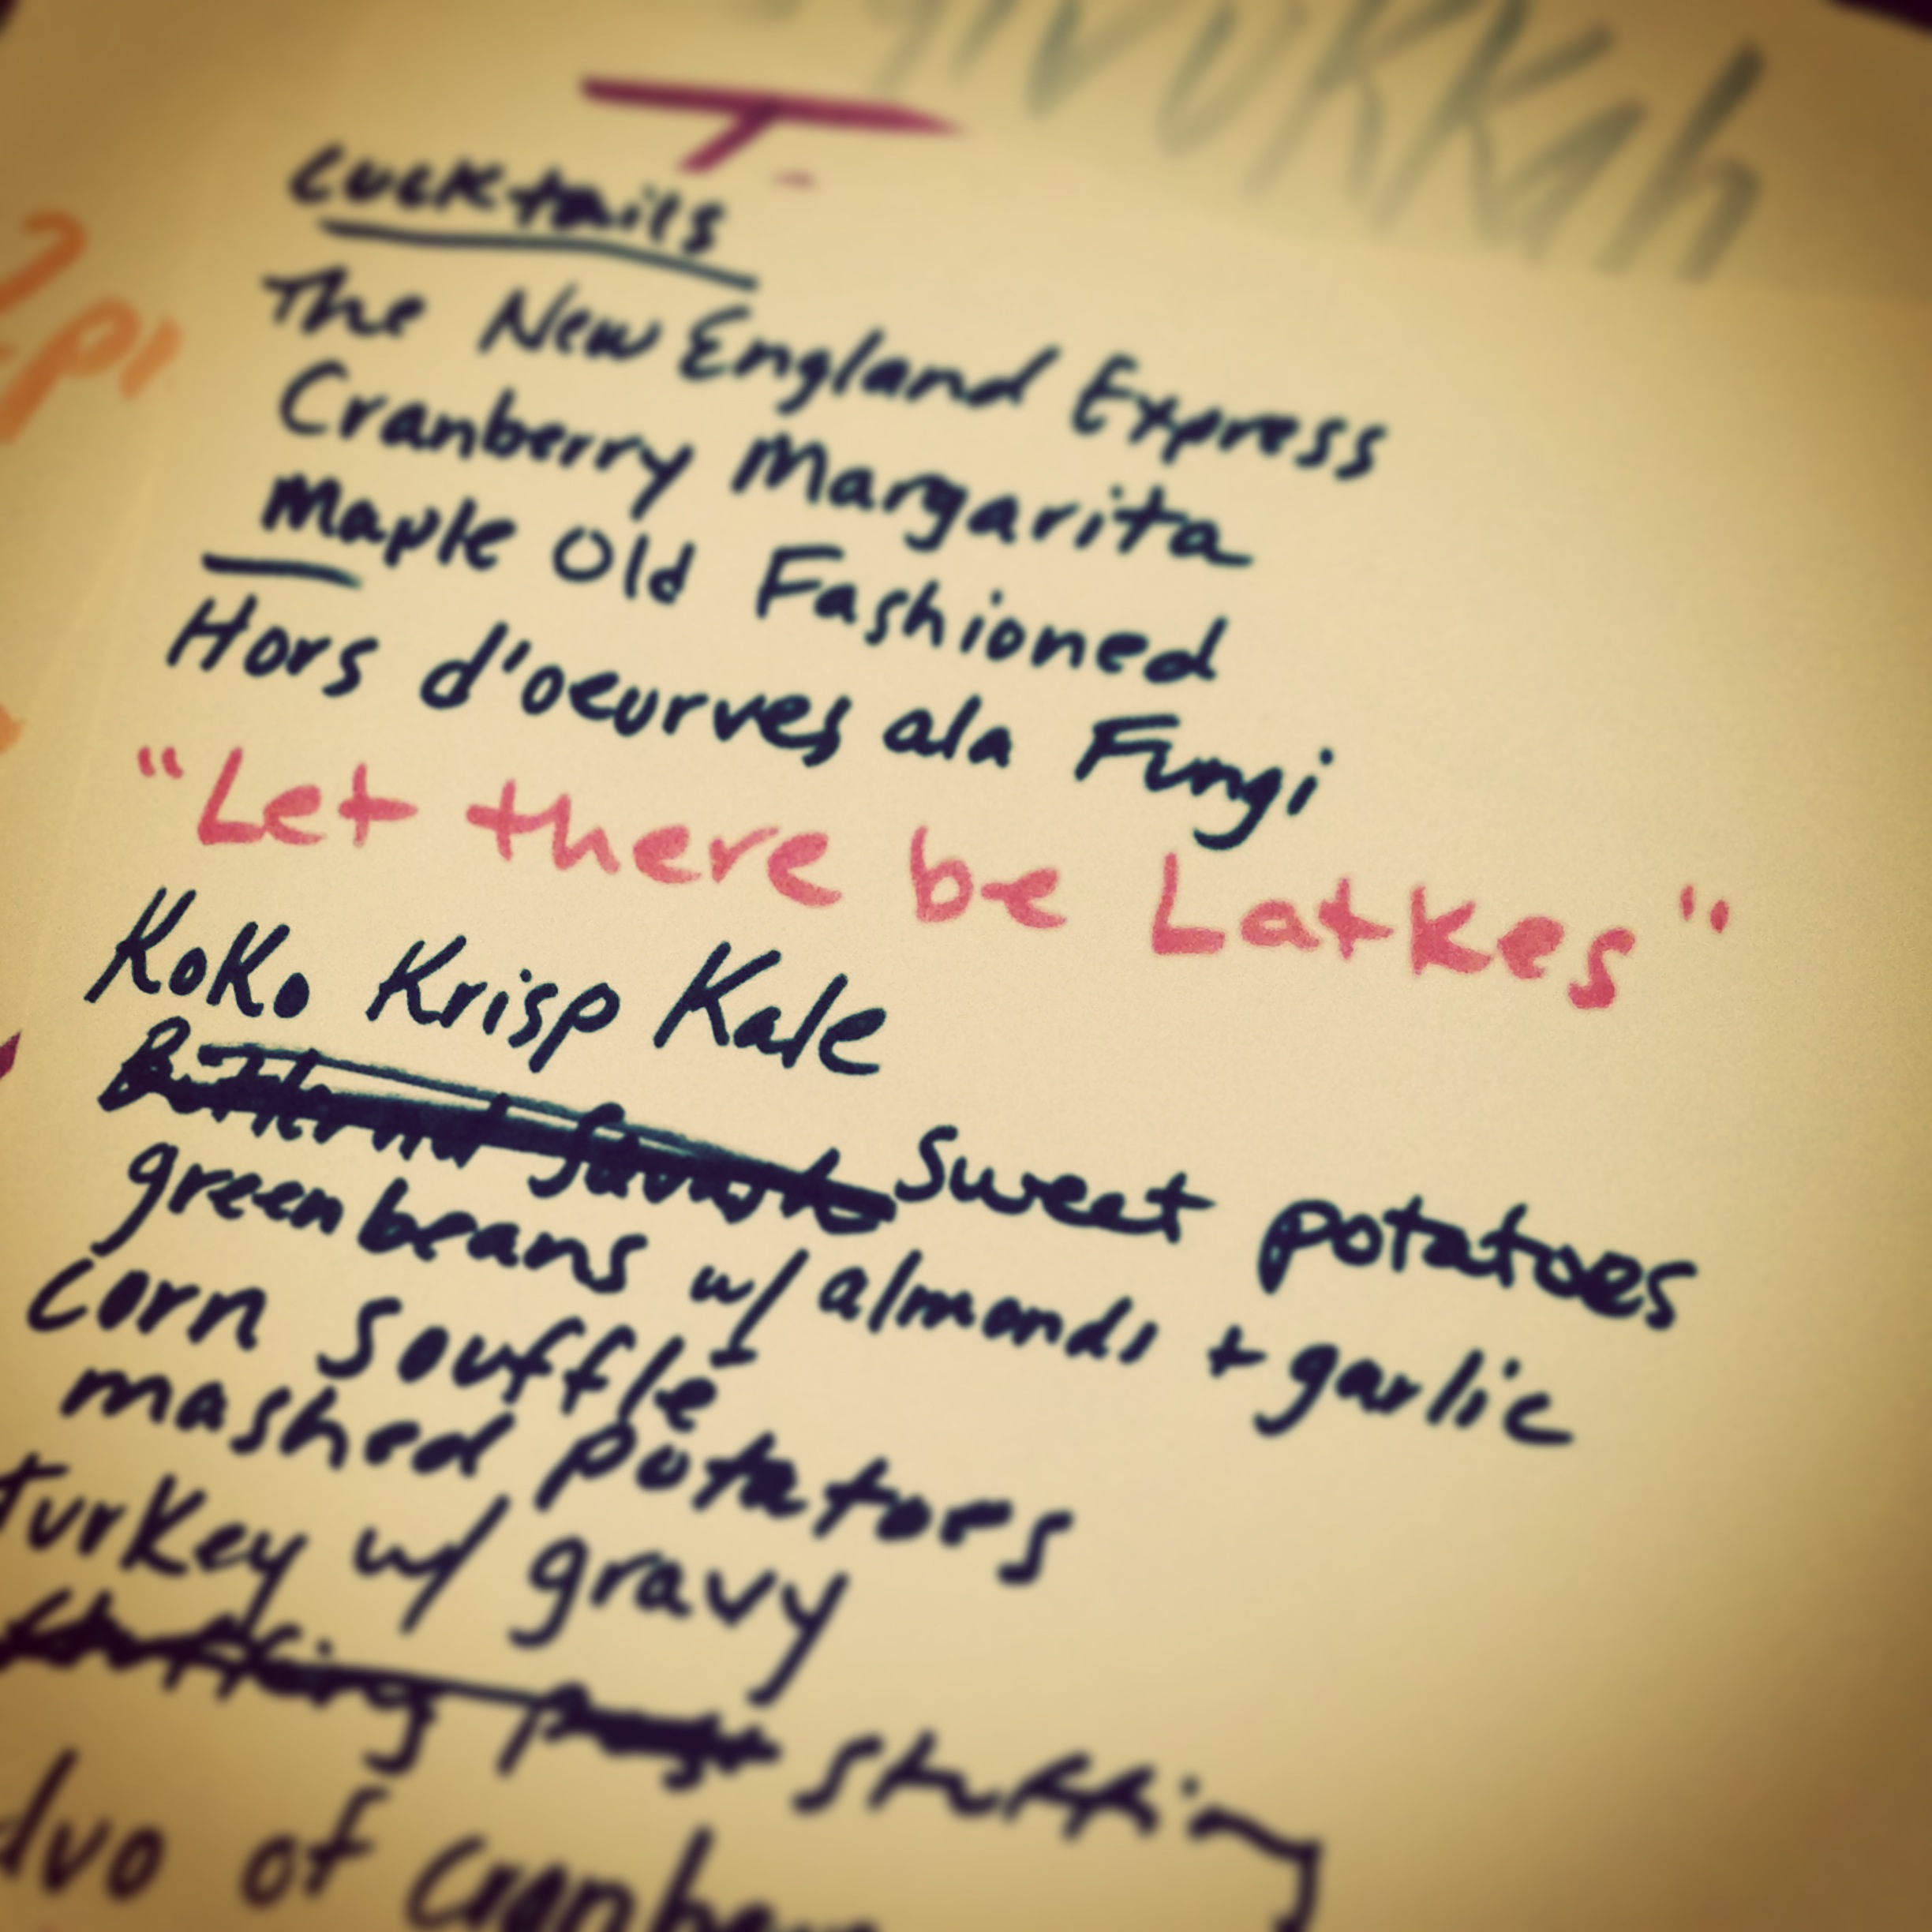 Cocktails
The New England Express
Cranberry Margarita
Maple Old Fashioned
Hors d'oeurves ala Fungi
"Let there be Latkes"
Koko Krisp Kale
Sweet potatoes
greenbeans w/ almonds + garlic
Corn Souffle
mashed potatoes
turkey w/ gravy
stuffing
duo of